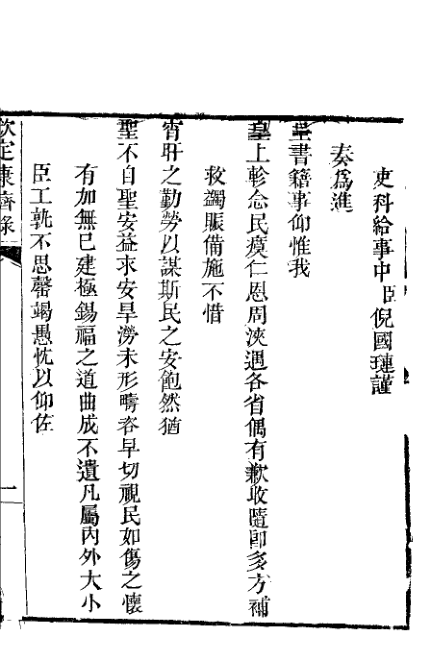 吏科給事中臣倪國璉謹
奏爲進
呈書籍事仰惟我
皇上軫念民瘼仁恩周浹遇各省偶有歉收隨卽多方補
救蠲賑備施不惜
宵旰之勤勞以謀斯民之安飽然猶
聖不自聖安益求安旱澇未形疇咨早切視民如傷之懷
有加無已建極錫福之道曲成不遺凡屬內外大小
臣工孰不思罄竭愚忱以仰佐
欽定康濟錄
一